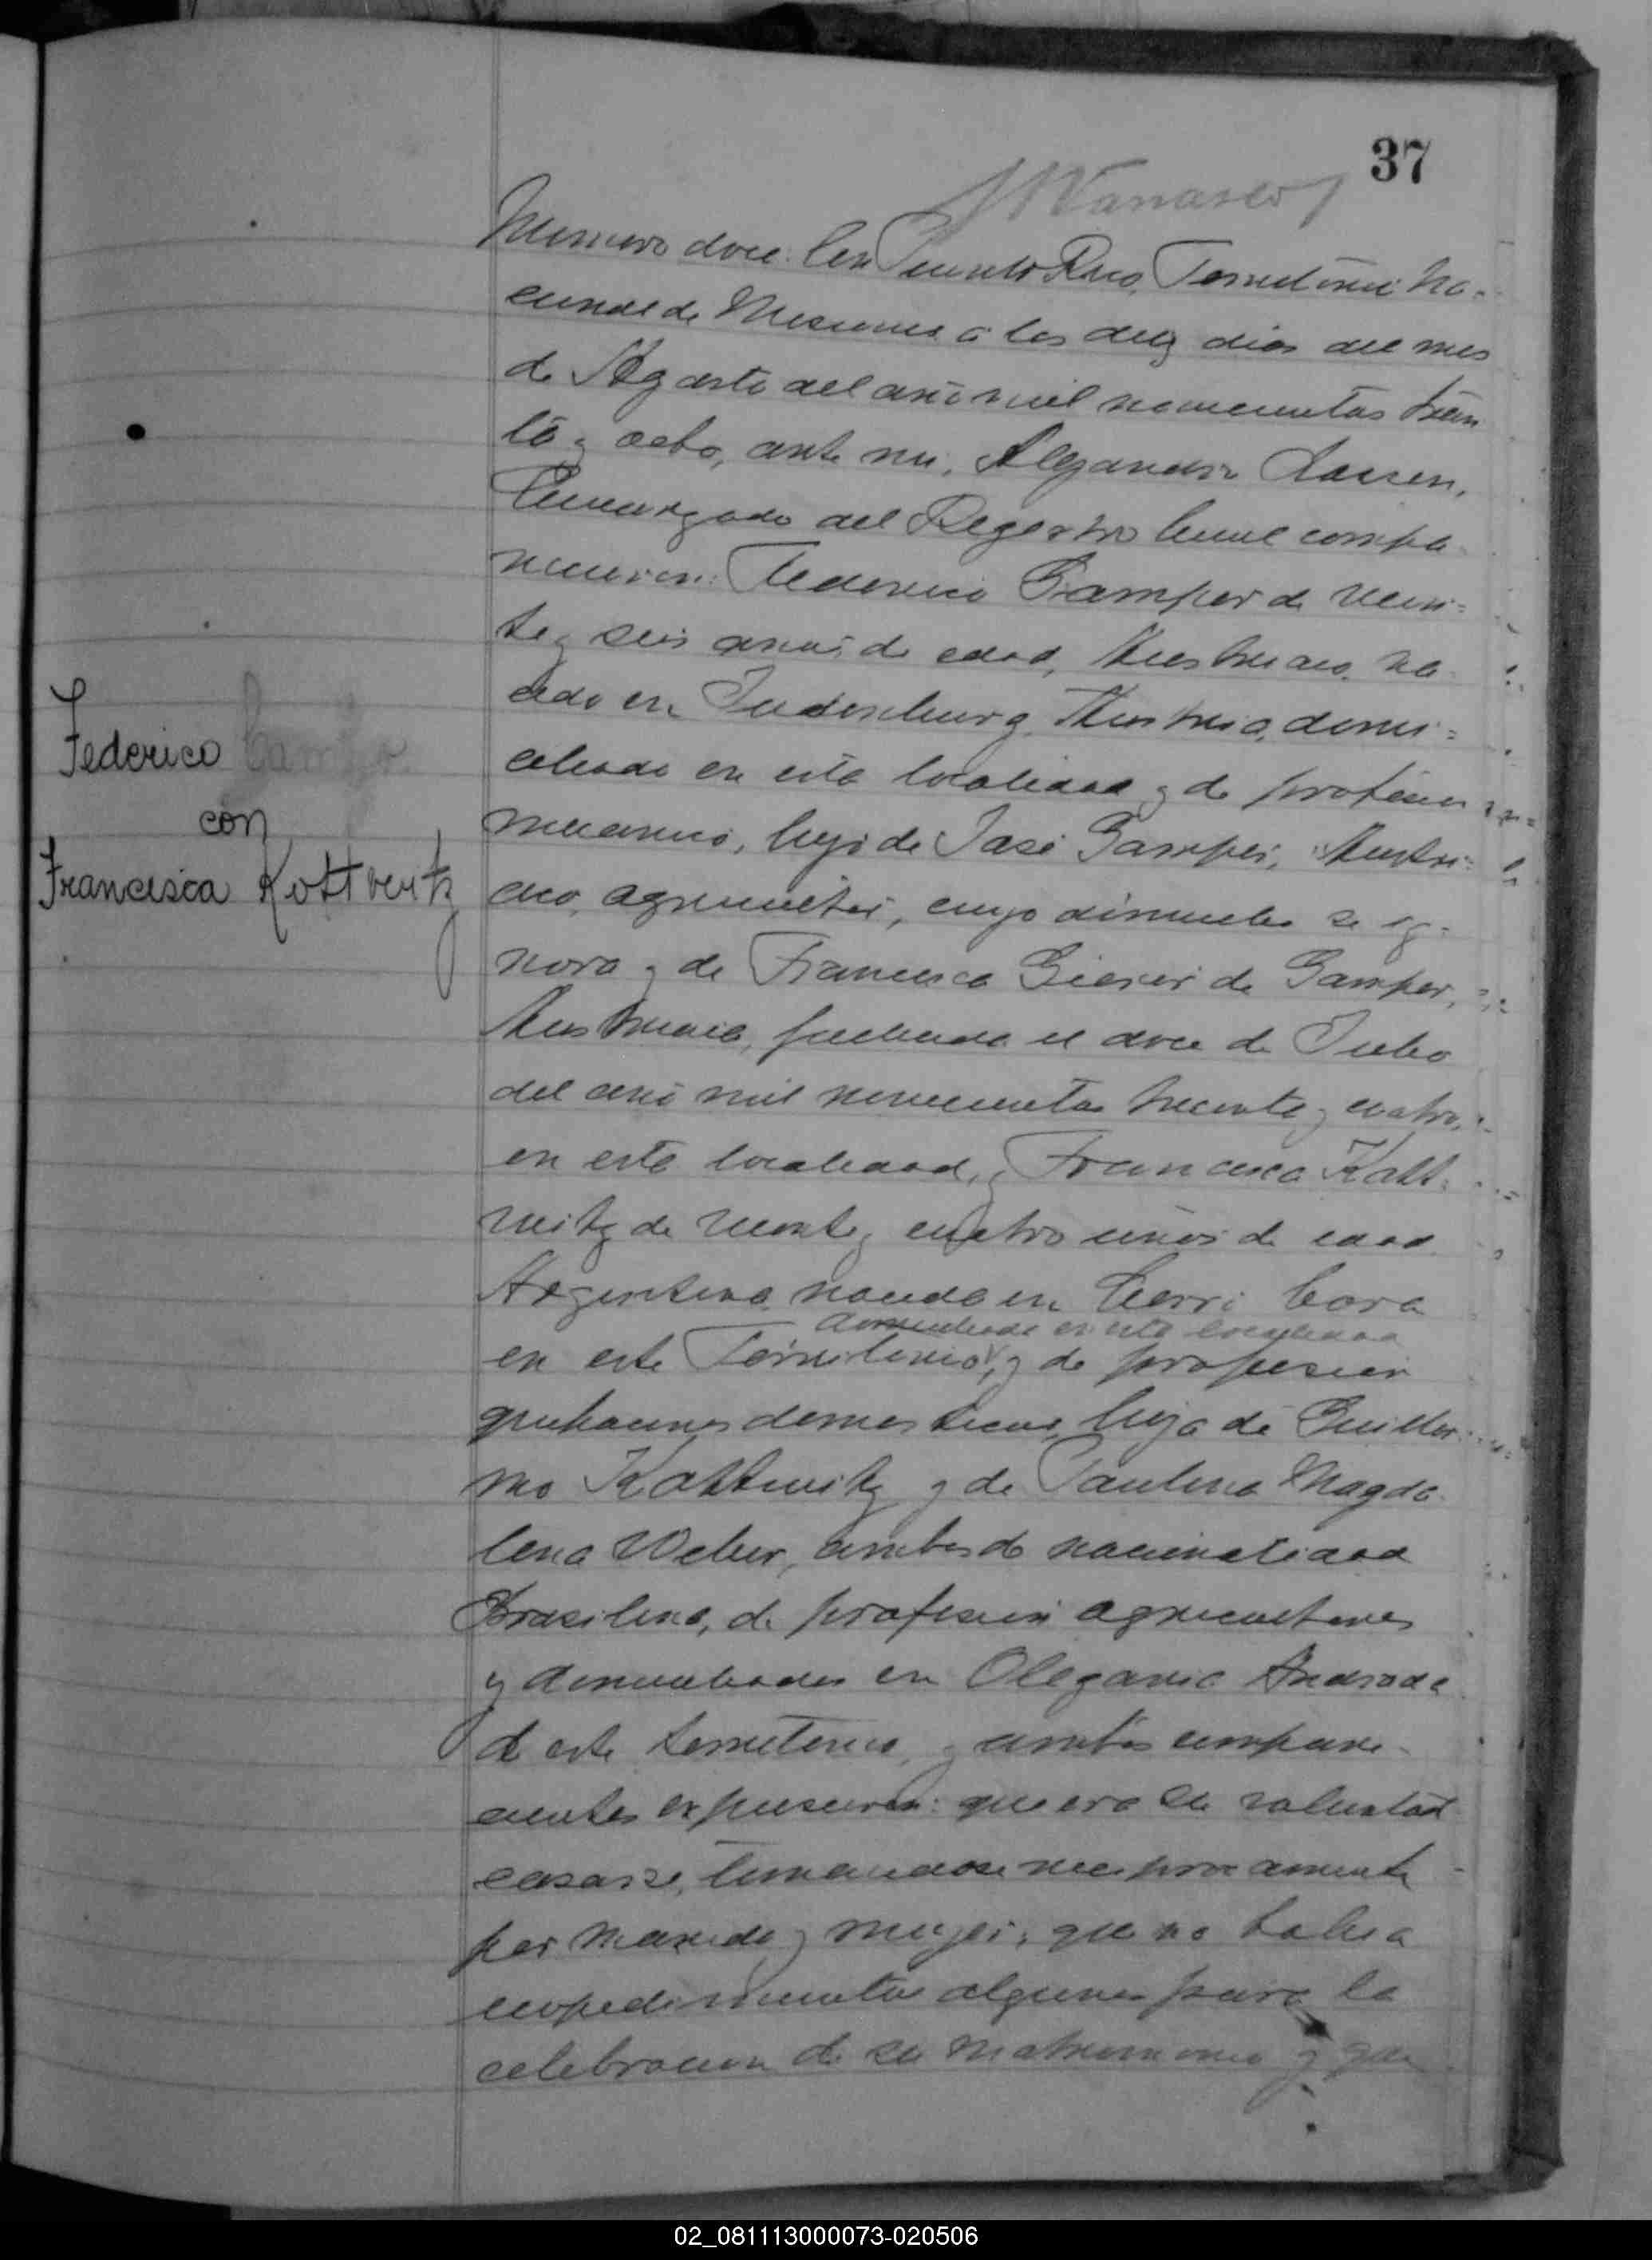 37
Numero doce. En Puerto Rico, Territorio Na-
cional de Misiones a los diez dias del mes
de Agosto del año mil novecientos trein
ta y ocho, ante mi, Alejandro Larsen,
Encargado del Registro Civil compa
recieron: Federico Gamper de vein-
te y seis años de edad, Austriaco, na
cido en Judenburg, Austria, domi-
ciliado en esta localidad y de profesion
mecanico, hijo de José Gamper, Austri-
aco, agricultor, cuyo domicilio se ig-
nora y de Francisca de Gamper,
Austriaca, fallecida el doce de Julio
del año mil novecientos treinta y cuatro,
en esta localidad, y Francisca Kott-
witz de veinte y cuatro años de edad
Argentina nacida en Cerro Cora
domiciliada en esta localidad
en este Territorio, y de profesion
quehaceres domesticos, hija de Guiller
mo Kottwitz y de Paulina Magda
lena Weber, ambos de nacionalidad
Brasilera, de profesion agricultores
y domiciliados en Olegario Andrade
de este territorio, y ambos compare-
cientes expusieron: que era su voluntad
casarse, tomandose reciprocamente
por marido y mujer, que no habia
impedimentos algunos para la
celebracion de su matrimonio y que
Federico
con
Francisca Kottwitz
02_081113000073-020506